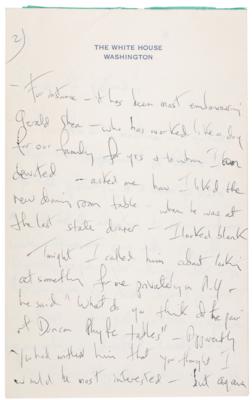 2)
THE WHITE HOUSE
WASHINGTON
- For instance - it has been most embarrassing
Gerald Shea - who has worked like a dog
for our family for yrs & to whom I am
devoted - asked me how I liked the
new dining room table - when he was at
the last state dinner - I looked blank
Tonight I called him about looking
at something for me privately in N.Y -
he said "What do you think of the pair
of Duncan Phyfe tables" - Apparently
you had written him that you thought I
would be most interested - but again